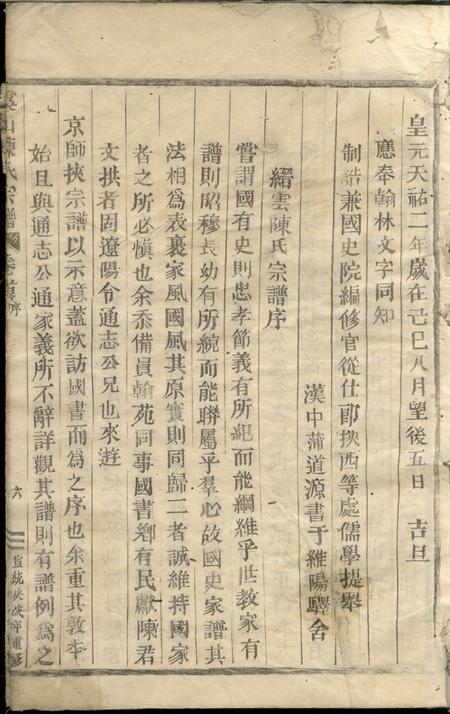 皇元天祐二年歲在己巳八月望後五日　吉旦
應奉翰林文字同知
制誥兼國史院編修官從仕郎挾西等處儒學提舉
漢中蒲道源書于維陽驛舍
縉雲陳氏宗譜序
嘗謂國有史則忠孝節義有所紀而能綱維乎世教家有
譜則昭穆長幼有所統而能聯屬乎羣心故國史家譜其
法相為表裏家風國風其原實則同歸二者誠維持國家
者之所必慎也余忝備員翰苑同事國書鄉有民獻陳君
文拱者固遼陽令通志公兄也來遊
京師挾宗譜以示意蓋欲訪國書而為之序也余重其敦本
始且與通志公通家義所不辭詳觀其譜則有譜例為之
陳氏宗譜
卷首序
六
宣統庚戌年重修